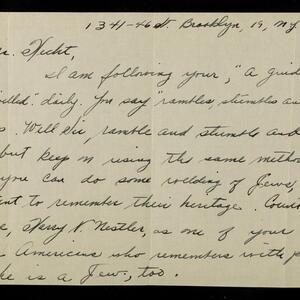 1341-46 St. Brooklyn, 19, N.Y.
r. Hecht,
I am following your, "A guid
illed". daily. You say "rambles, stumbles an
s. Well Sir, ramble and stumble and
but keep on using the same metho
you can do some rodding of Jews,
nt to remember their heritage. Coun
e, Harry N. Nestler, as one of your
Americans who remembers with p
ke is a Jew, too.